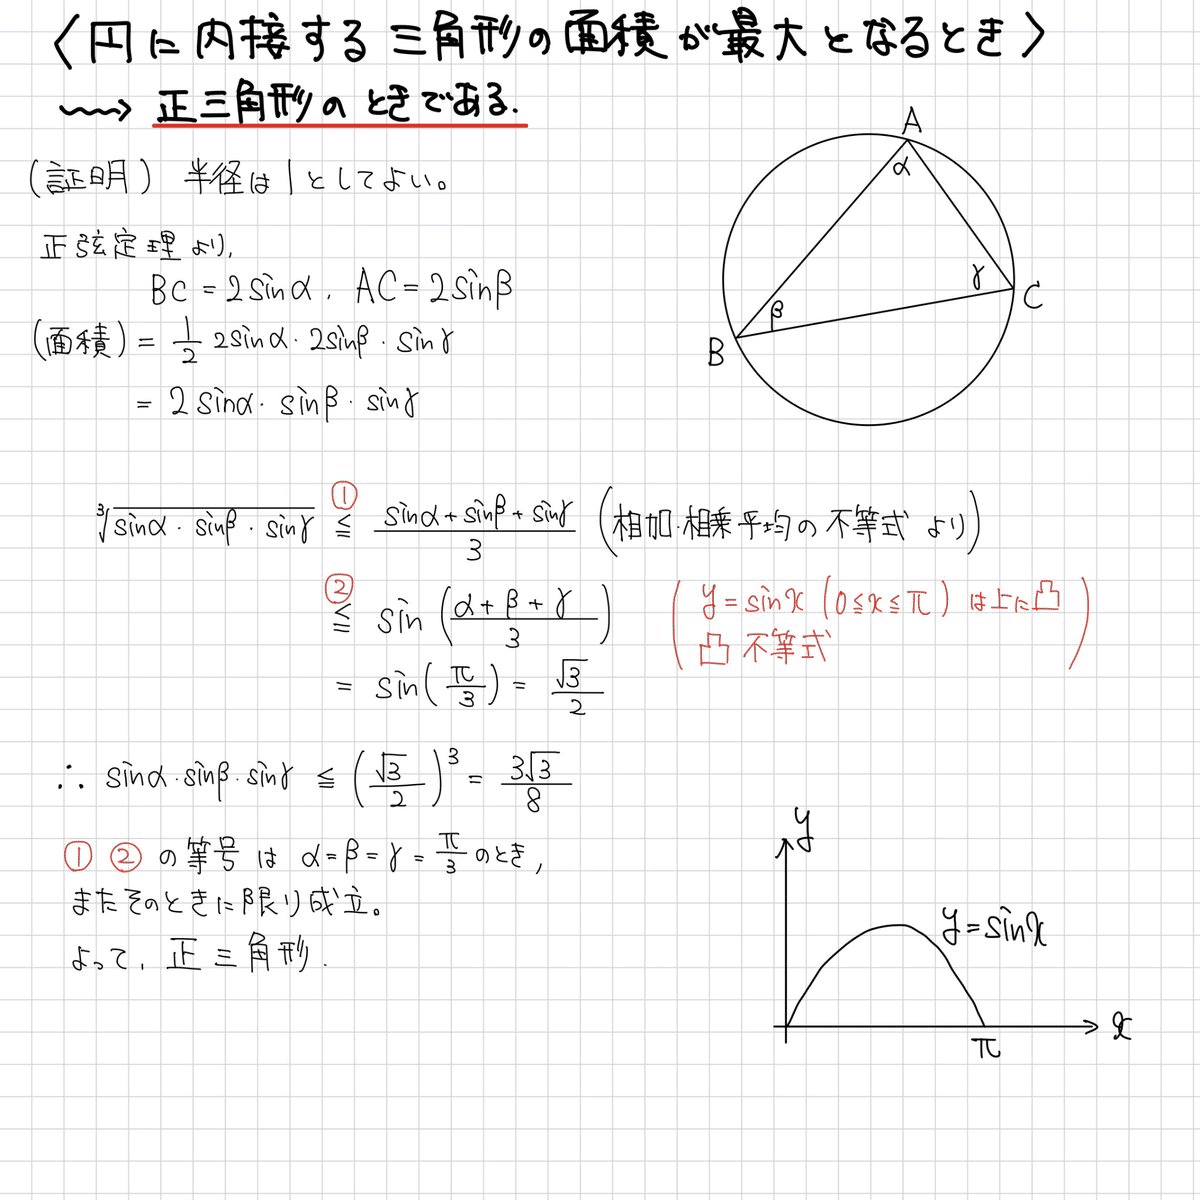 〈円に内接する三角形の面積が最大となるとき〉
〰→ 正三角形のときである.
(証明) 半径は1としてよい。
正弦定理より,
BC = 2sinα, AC = 2sinβ
(面積) = 1/2 2sinα・2sinβ・sinγ
= 2sinα・sinβ・sinγ
A
α
β
γ
B
C
∛(sinα・sinβ・sinγ) ①≦ (sinα+sinβ+sinγ)/3 (相加・相乗平均の不等式より)
②≦ sin((α+β+γ)/3) (y=sinx (0≦x≦π) は上に凸
凸不等式)
= sin(π/3) = √3/2
∴ sinα・sinβ・sinγ ≦ (√3/2)^3 = 3√3/8
① ② の等号は α=β=γ=π/3 のとき,
またそのときに限り成立。
よって, 正三角形.
y
y=sinx
x
π